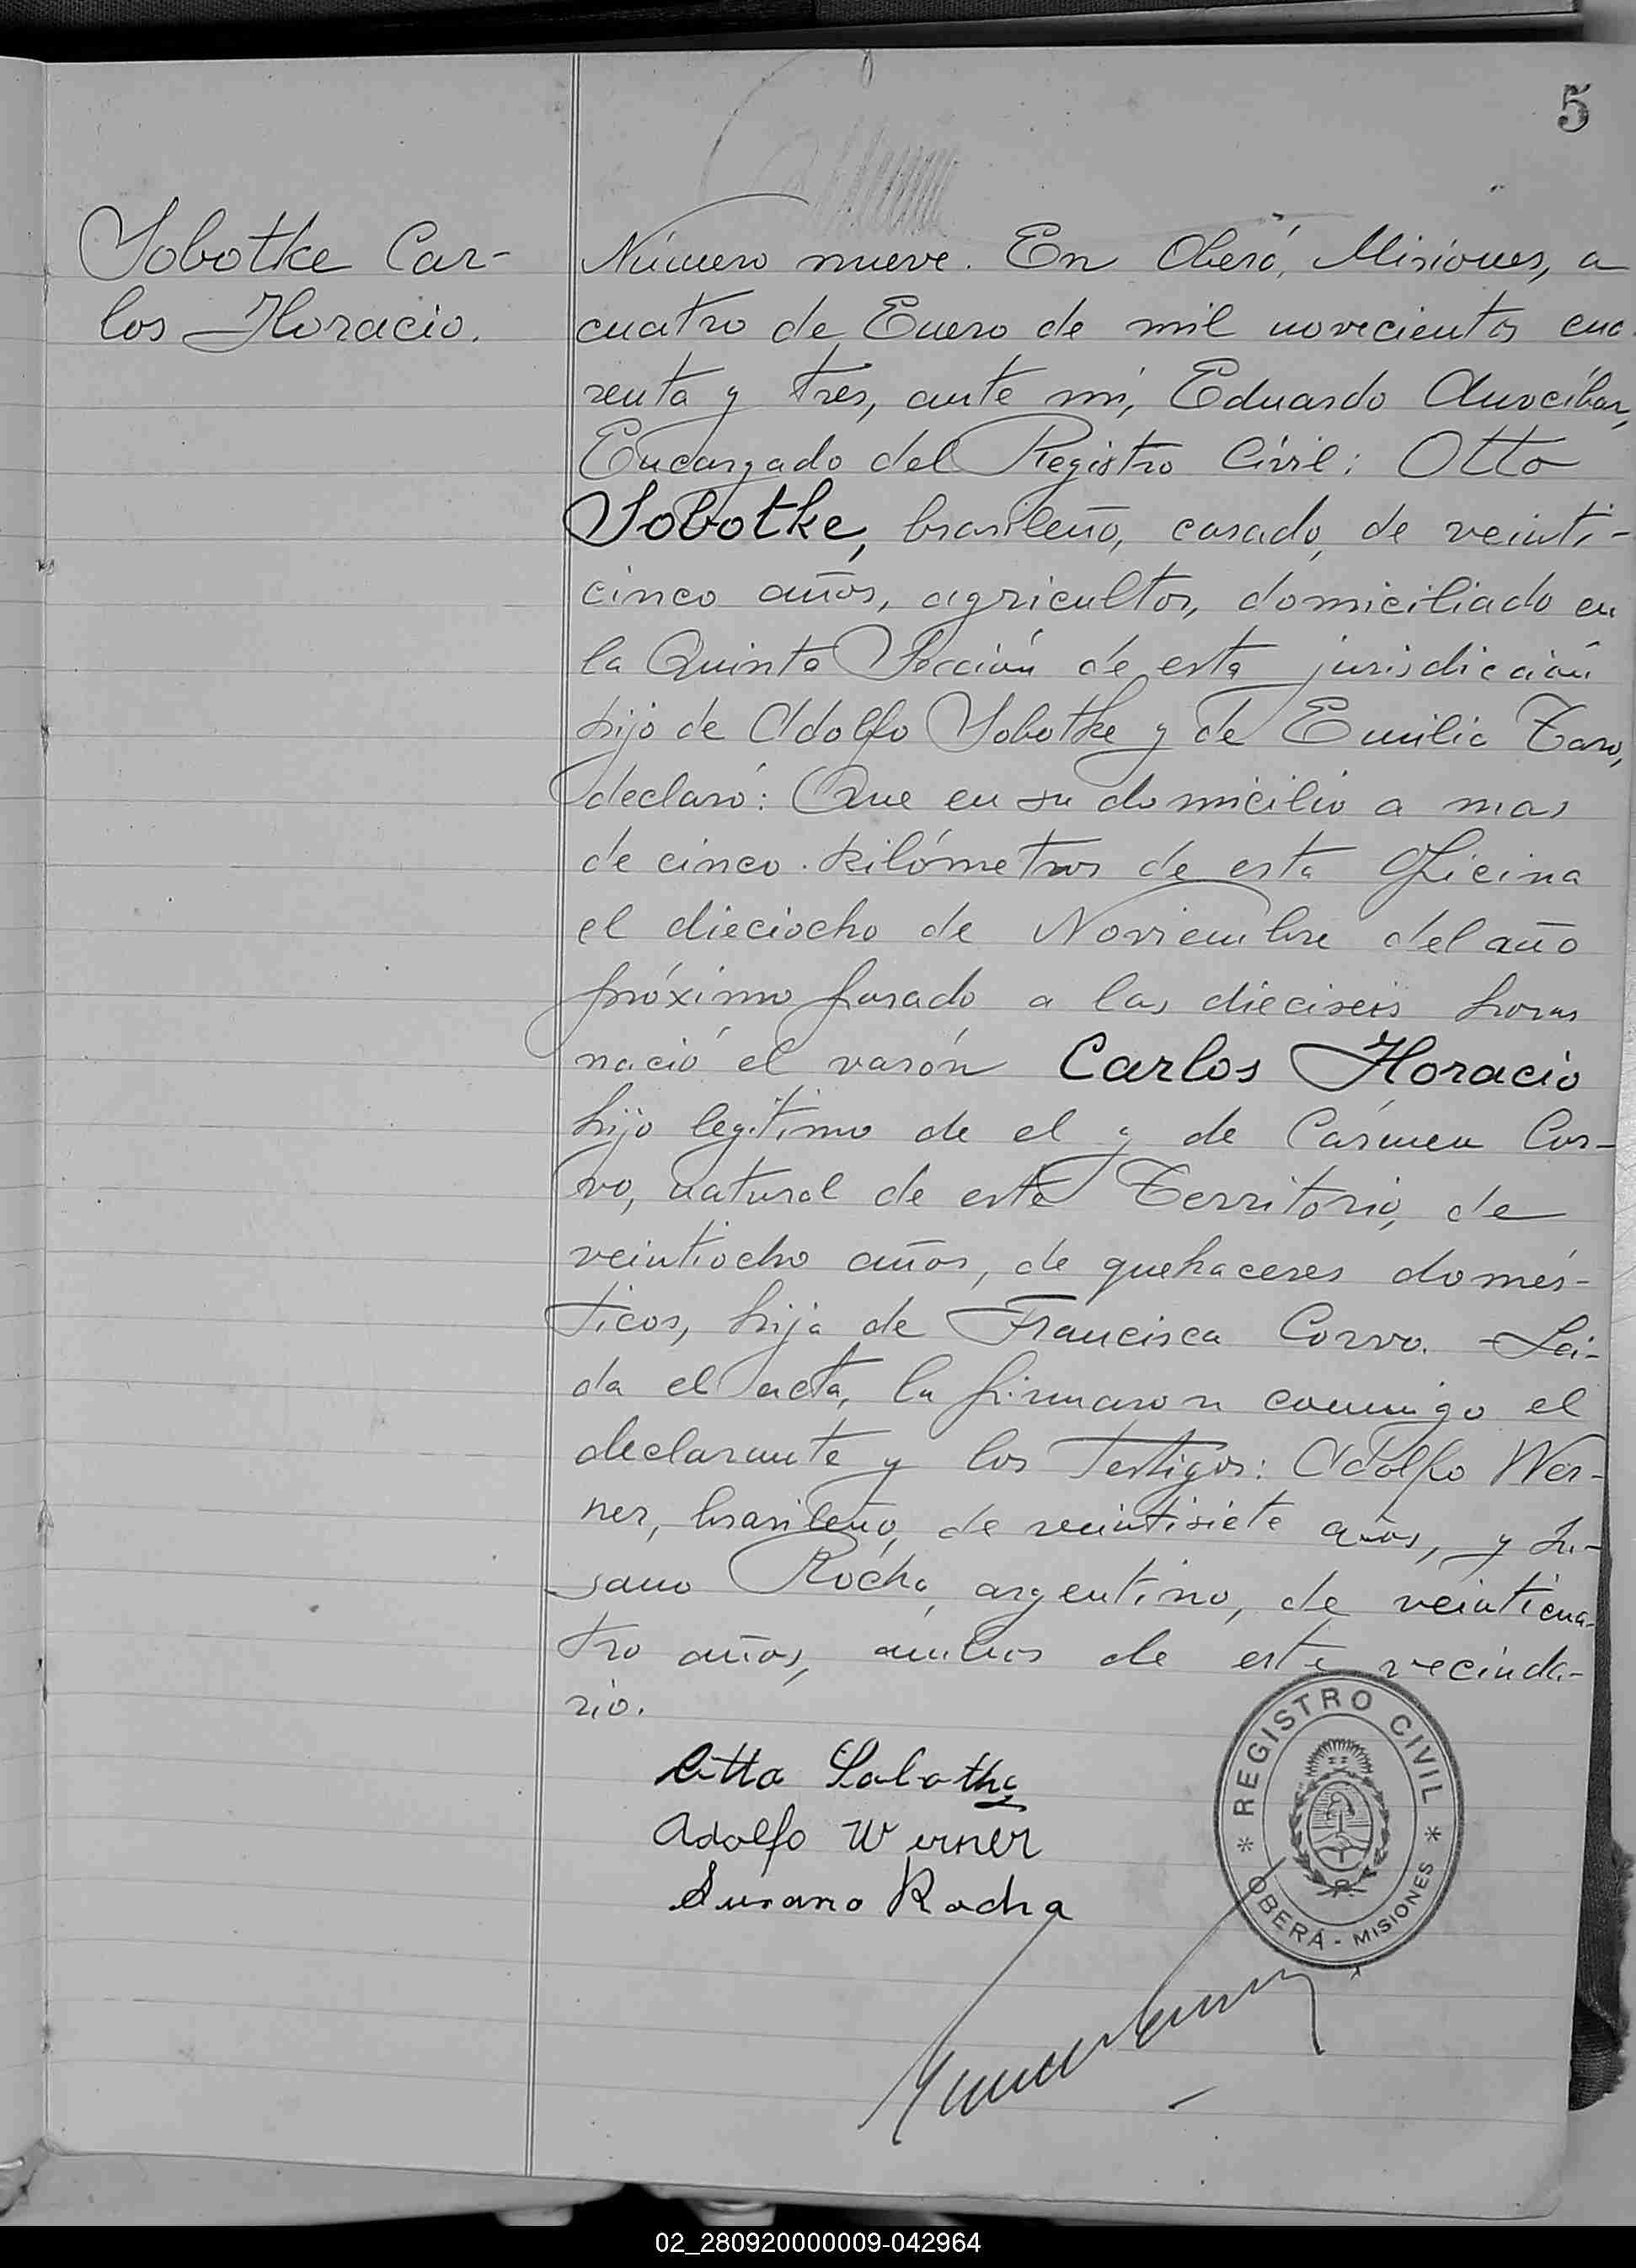 5
Sobotke Car-
los Horacio.
Número nueve. En Oberá, Misiones, a
cuatro de Enero de mil novecientos cua
renta y tres, ante mi, Eduardo
Encargado del Registro Civil: Otto
Sobotke, brasileño, casado, de veinti-
cinco años, agricultor, domiciliado en
la Quinta Sección de esta jurisdicción
hijo de Adolfo Sobotke y de Emilia
declaró: Que en su domicilio a mas
de cinco kilómetros de esta Oficina
el dieciocho de Noviembre del año
próximo pasado a las dieciseis horas
nació el varón Carlos Horacio
hijo legítimo de el y de Cármen Cor-
vo, natural de este Territorio, de
veintiocho años, de quehaceres domés-
ticos, hija de Francisca Corvo. Leí-
da el acta, la firmaron conmigo el
declarante y los testigos: Adolfo Wer-
ner, brasileño, de veintisiete años, y Su-
sano Rocha, argentino, de veinticua-
tro años, ambos de este vecinda-
rio.
Otto Sobotke
Adolfo Werner
Susano Rocha
REGISTRO CIVIL
* OBERÁ - MISIONES *
02_280920000009-042964